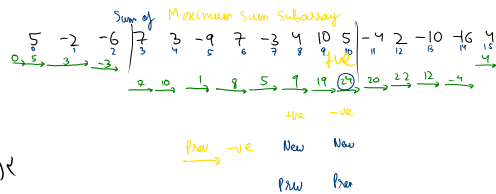 Sum of Maximum Sum Subarray
5 -2 -6 7 3 -9 7 -3 4 10 5 -4 2 -10 -16 4
0 1 2 3 4 5 6 7 8 9 10 11 12 13 14 15
+ve
0 5 3 -3 4
7 10 1 8 5 9 19 24 20 22 12 -4
+ve -ve
Prev -ve New New
Prev Prev